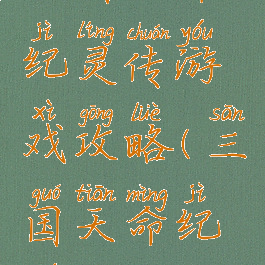 jì líng chuán yóu
纪灵传游
xì gōng lüè sān
戏攻略(三
guó tiān mìng jì
国天命纪